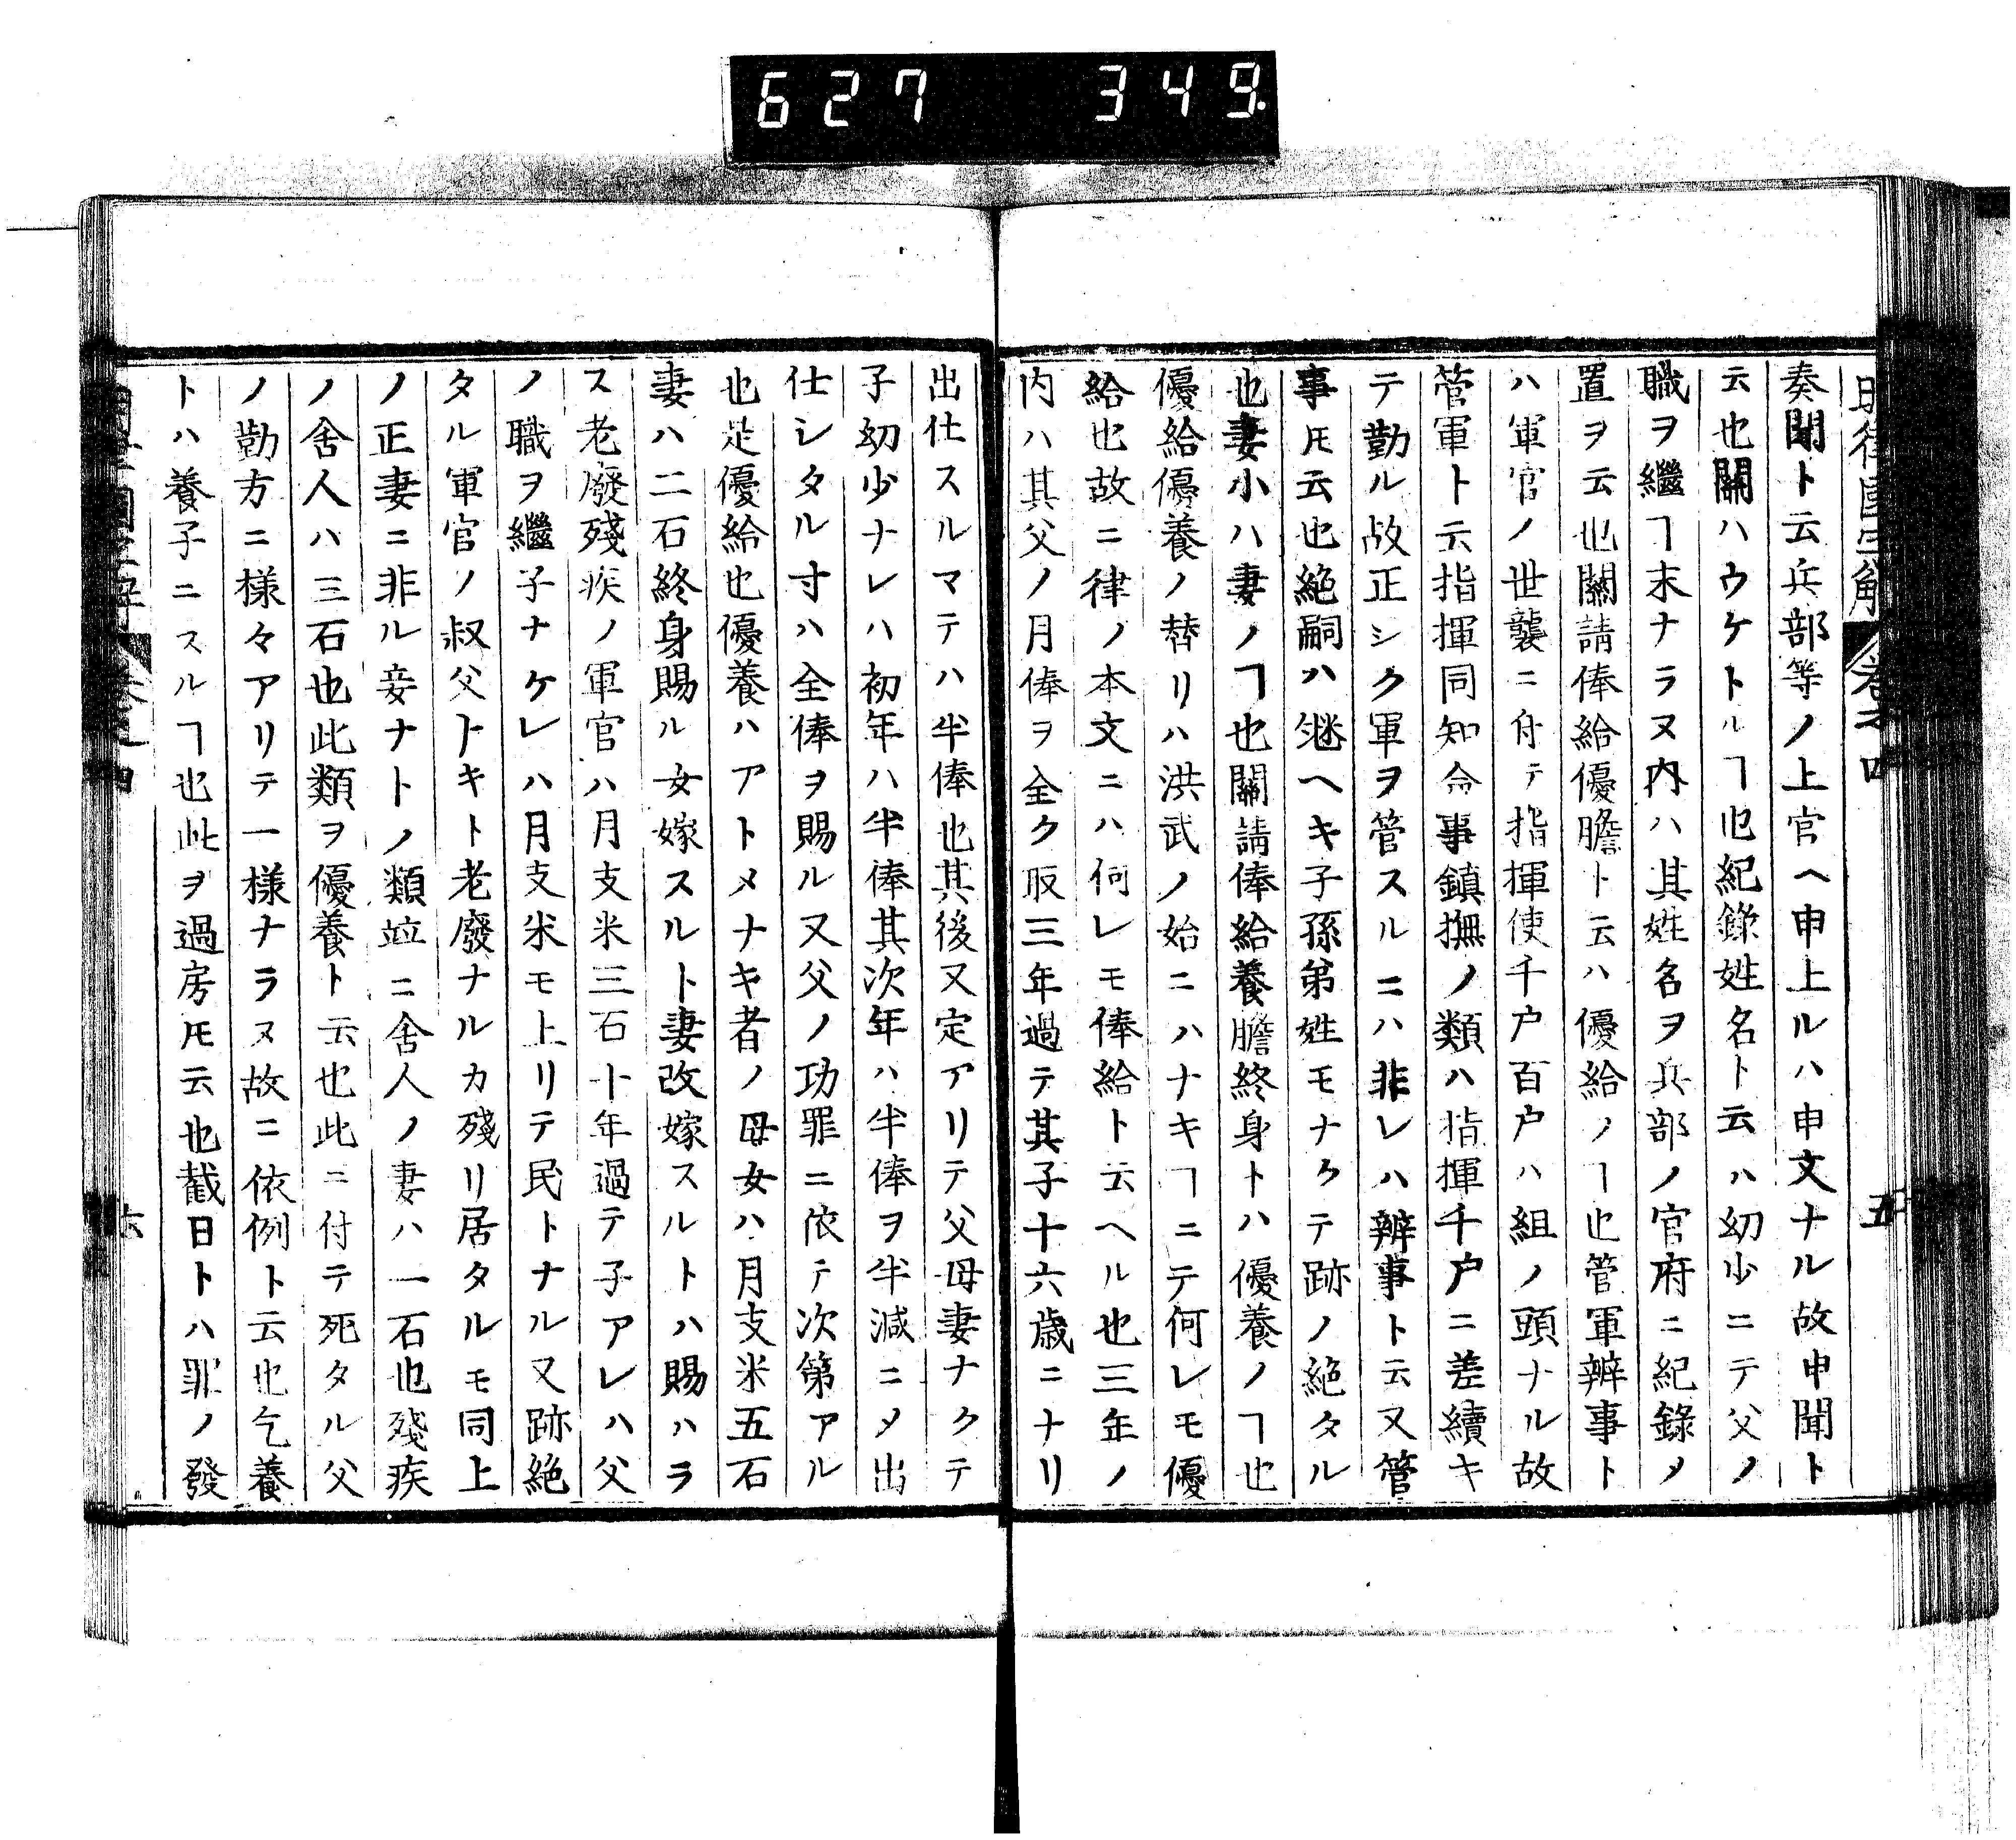 627 349
明律國字解 卷之四 五
奏聞ト云兵部等ノ上官ヘ申上ルハ申文ナル故申聞ト
云也關ハウケトルヿ也紀錄姓名ト云ハ幼少ニテ父ノ
職ヲ繼ヿ末ナラヌ內ハ其姓名ヲ兵部ノ官府ニ紀錄メ
置ヲ云也關請俸給優贍ト云ハ優給ノヿ也管軍辨事ト
ハ軍官ノ世襲ニ付テ指揮使千户百户ハ組ノ頭ナル故
管軍ト云指揮同知僉事鎮撫ノ類ハ指揮千户ニ差續キ
テ勤ル故正シク軍ヲ管スルニハ非レハ辨事ト云又管
事𪜈云也絕嗣ハ継ヘキ子孫弟姪モナクテ跡ノ絕タル
也妻小ハ妻ノヿ也關請俸給養贍終身トハ優養ノヿ也
優給優養ノ替リハ洪武ノ始ニハナキヿニテ何レモ優
給也故ニ律ノ本文ニハ何レモ俸給ト云ヘル也三年ノ
內ハ其父ノ月俸ヲ全ク取三年過テ其子十六歲ニナリ
出仕スルマテハ半俸也其後又定アリテ父母妻ナクテ
子幼少ナレハ初年ハ半俸其次年ハ半俸ヲ半減ニメ出
仕シタル寸ハ全俸ヲ賜ル又父ノ功罪ニ依テ次第アル
也是優給也優養ハアトメナキ者ノ母女ハ月支米五石
妻ハ二石終身賜ル女嫁スルト妻改嫁スルトハ賜ハラ
ス老廢殘疾ノ軍官ハ月支米三石十年過テ子アレハ父
ノ職ヲ繼子ナケレハ月支米モ上リテ民トナル又跡絕
タル軍官ノ叔父トキト老廢ナルカ殘リ居タルモ同上
ノ正妻ニ非ル妾ナトノ類竝ニ舍人ノ妻ハ一石也殘疾
ノ舍人ハ三石也此類ヲ優養ト云也此ニ付テ死タル父
ノ勤方ニ樣々アリテ一樣ナラヌ故ニ依例ト云也乞養
トハ養子ニスルヿ也此ヲ過房𪜈云也截日トハ罪ノ發
六